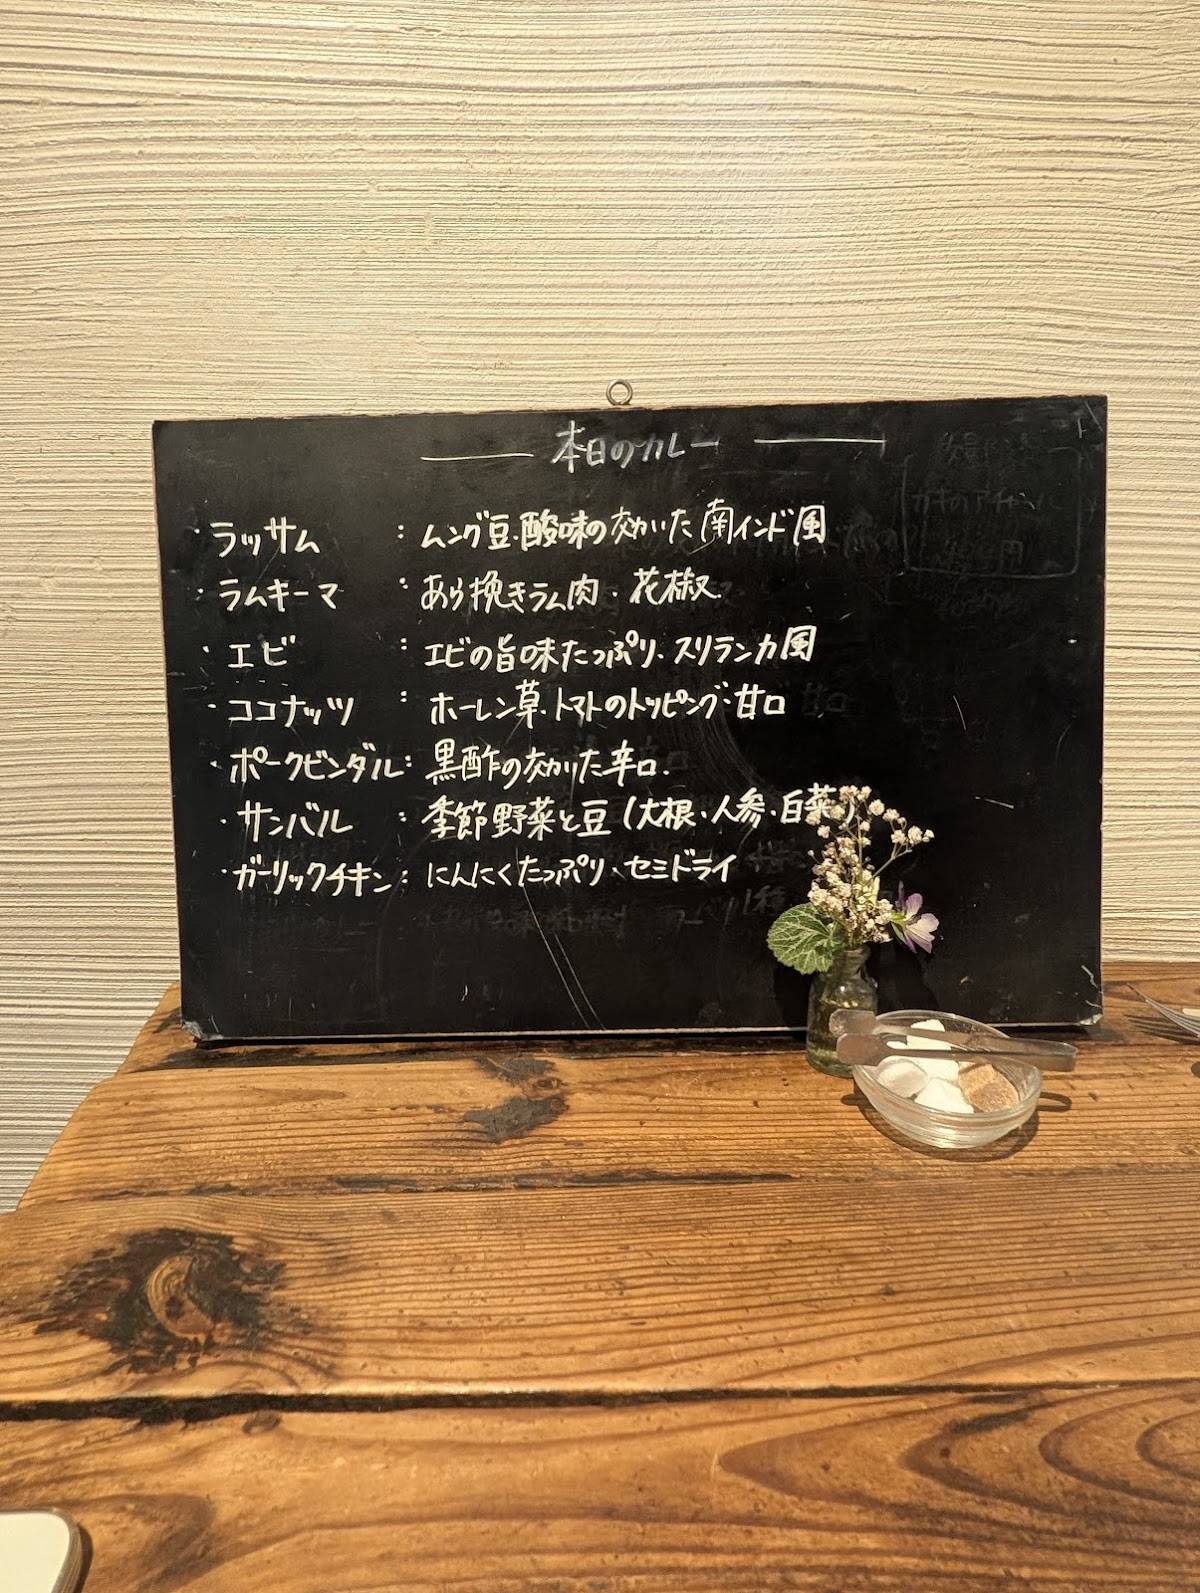 本日のカレー
・ラッサム : ムング豆・酸味の効いた南インド風
・ラムキーマ : あら挽きラム肉・花椒
・エビ : エビの旨味たっぷり・スリランカ風
・ココナッツ : ホーレン草・トマトのトッピング・甘口
・ポークビンダル : 黒酢の効いた辛口.
・サンバル : 季節野菜と豆(大根・人参・白菜)
・ガーリックチキン : にんにくたっぷり、セミドライ